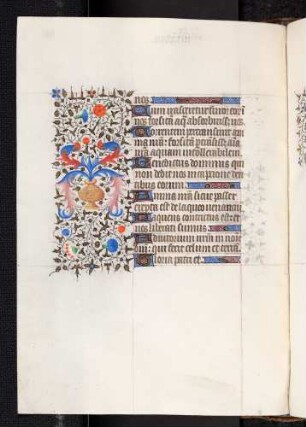 nos.
Cum irasceretur furor eor in
nos forsitan aq̃ absorbuisset nos
Torrentem pertransivit ani
ma nrã: forsitan ptransisset aĩa
nrã aquam intollerabilem.
Benedictus dominus qui
non dedit nos in captione den
tibus eorum.
Anima nrã sicut passer
erepta est de laqueo venantium
Laqueus contritus est: et
nos liberati sumus
Adiutorium nrm in nom
dni: qui fecit celum et terrã
Gloria patri et.